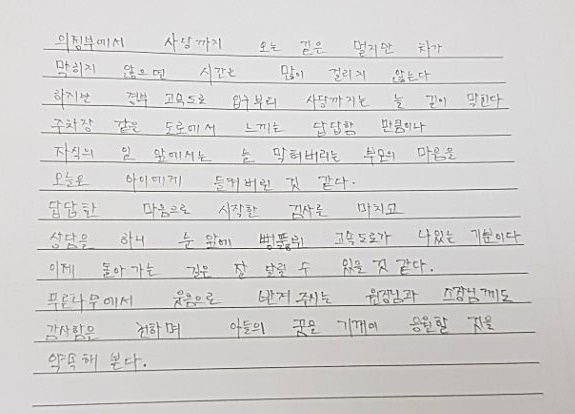 의정부에서 사당까지 오는 길은 멀지만 차가
막히지 않으면 시간은 많이 걸리지 않는다
하지만 경부 고속도로 입구부터 사당까지는 늘 길이 막힌다
주차장 같은 도로에서 느끼는 답답함 만큼이나
자식의 일 앞에서는 늘 막혀버리는 부모의 마음을
오늘은 아이에게 들켜버린 것 같다.
답답한 마음으로 시작한 검사를 마치고
상담을 하니 눈 앞에 뻥뚫린 고속도로가 나있는 기분이다
이제 돌아 가는 길은 잘 달릴 수 있을 것 같다.
푸른나무에서 웃음으로 반겨 주시는 원장님과 소장님께도
감사함을 전하며 아들의 꿈을 기꺼이 응원할 것을
약속해 본다.